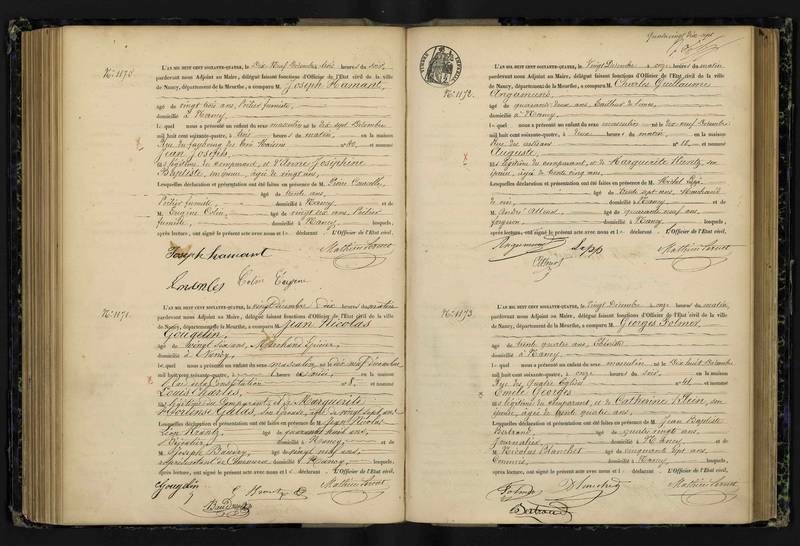 N.° 1170.
L'AN MIL HUIT CENT SOIXANTE-QUATRE, le Dix Neuf Décembre, trois heures du soir,
pardevant nous Adjoint au Maire, délégué faisant fonctions d'Officier de l'Etat civil de la ville
de Nancy, département de la Meurthe, a comparu M. Joseph Hamant,
âgé de vingt trois ans, Potier fumiste,
domicilié à Nancy,
lequel nous a présenté un enfant du sexe masculin né le dix sept Décembre
mil huit cent soixante-quatre, à trois heures du matin, en la maison
Rue du faubourg des trois Maisons n° 40, et nommé
Jean Joseph,
fils légitime du comparant, et d'Anne Joséphine
Baptiste, sa épouse, âgée de vingt ans,
Lesquelles déclaration et présentation ont été faites en présence de M. Pierre
âgé de trente ans,
Potier fumiste, domicilié à Nancy et de
M. Eugène Colin, âgé de vingt six ans, Potier
fumiste, domicilié à Nancy, lesquels,
après lecture, ont signé le présent acte avec nous et le déclarant. L'Officier de l'Etat civil,
Joseph hamant
Colin Eugene
N.° 1171.
L'AN MIL HUIT CENT SOIXANTE-QUATRE, le vingt Décembre, à dix heures du matin
pardevant nous Adjoint au Maire, délégué faisant fonctions d'Officier de l'Etat civil de la ville
de Nancy, département de la Meurthe, a comparu M. Jean Nicolas
Gougelin,
âgé de vingt six ans, Marchand
domicilié à Nancy,
lequel nous a présenté un enfant du sexe masculin né le dix neuf Décembre
mil huit cent soixante-quatre, à une heure du soir, en la maison
Rue de la Constitution n° 8, et nommé
Louis Charles,
fils légitime du comparant, et de Marguerite
Hortense Galas, son épouse, âgée de vingt sept ans
Lesquelles déclaration et présentation ont été faites en présence de M. Jean Nicolas
Léon âgé de quarante huit ans,
Bijoutier, domicilié à Nancy, et de
M. Joseph Baudry, âgé de vingt neuf ans,
représentant de Commerce, domicilié à Nancy, lesquels,
après lecture, ont signé le présent acte avec nous et le déclarant. L'Officier de l'Etat civil,
Gougelin
Quatre vingt dix sept
N.° 1172.
L'AN MIL HUIT CENT SOIXANTE-QUATRE, le Vingt Décembre à onze heures du matin
pardevant nous Adjoint au Maire, délégué faisant fonctions d'Officier de l'Etat civil de la ville
de Nancy, département de la Meurthe, a comparu M. Charles Guillaume
âgé de quarante deux ans, tailleur de
domicilié à Nancy,
lequel nous a présenté un enfant du sexe masculin né le dix neuf Décembre
mil huit cent soixante-quatre, à deux heures du matin, en la maison
Rue des artisans n° 18, et nommé
Auguste,
fils légitime du comparant, et de Marguerite son
épouse, âgée de trente cinq ans,
Lesquelles déclaration et présentation ont été faites en présence de M. Michel
âgé de trente sept ans, Marchand
de vin, domicilié à Nancy, et de
M. André âgé de quarante neuf ans,
forgeron, domicilié à Nancy, lesquels,
après lecture, ont signé le présent acte avec nous et le déclarant. L'Officier de l'Etat civil,
N.° 1173.
L'AN MIL HUIT CENT SOIXANTE-QUATRE, le Vingt Décembre à onze heures du matin,
pardevant nous Adjoint au Maire, délégué faisant fonctions d'Officier de l'Etat civil de la ville
de Nancy, département de la Meurthe, a comparu M. Georges Folmer
âgé de trente quatre ans, Ebéniste
domicilié à Nancy,
lequel nous a présenté un enfant du sexe masculin né le Dix huit Décembre
mil huit cent soixante-quatre, à onze heures du soir, en la maison
Rue des Quatre Eglises n° 41, et nommé
Emile Georges,
fils légitime du comparant, et de Catherine Klein, son
épouse, âgée de trente quatre ans,
Lesquelles déclaration et présentation ont été faites en présence de M. Jean Baptiste
Bertrand, âgé de vingt ans,
Journalier, domicilié à Nancy et de
M. Nicolas Blanchet âgé de cinquante sept ans,
Commis, domicilié à Nancy, lesquels,
après lecture, ont signé le présent acte avec nous et le déclarant. L'Officier de l'Etat civil,